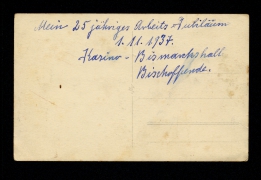 Mein 25 jähriges Arbeits Jubiläum
1.11.1937.
Kasino - Bismarckshall
Bischofferode.